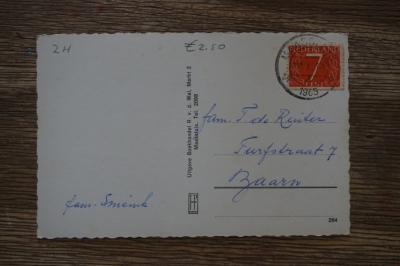 2H
£ 2.50
NEDERLAND
7
CENT
1965
Uitgave Boekhandel R. v. d. Wal, Markt 2
Maassluis. Tel. 2098
fam. T. de Ruiter
Turfstraat 7
Baarn
fam. Smeink
H
264